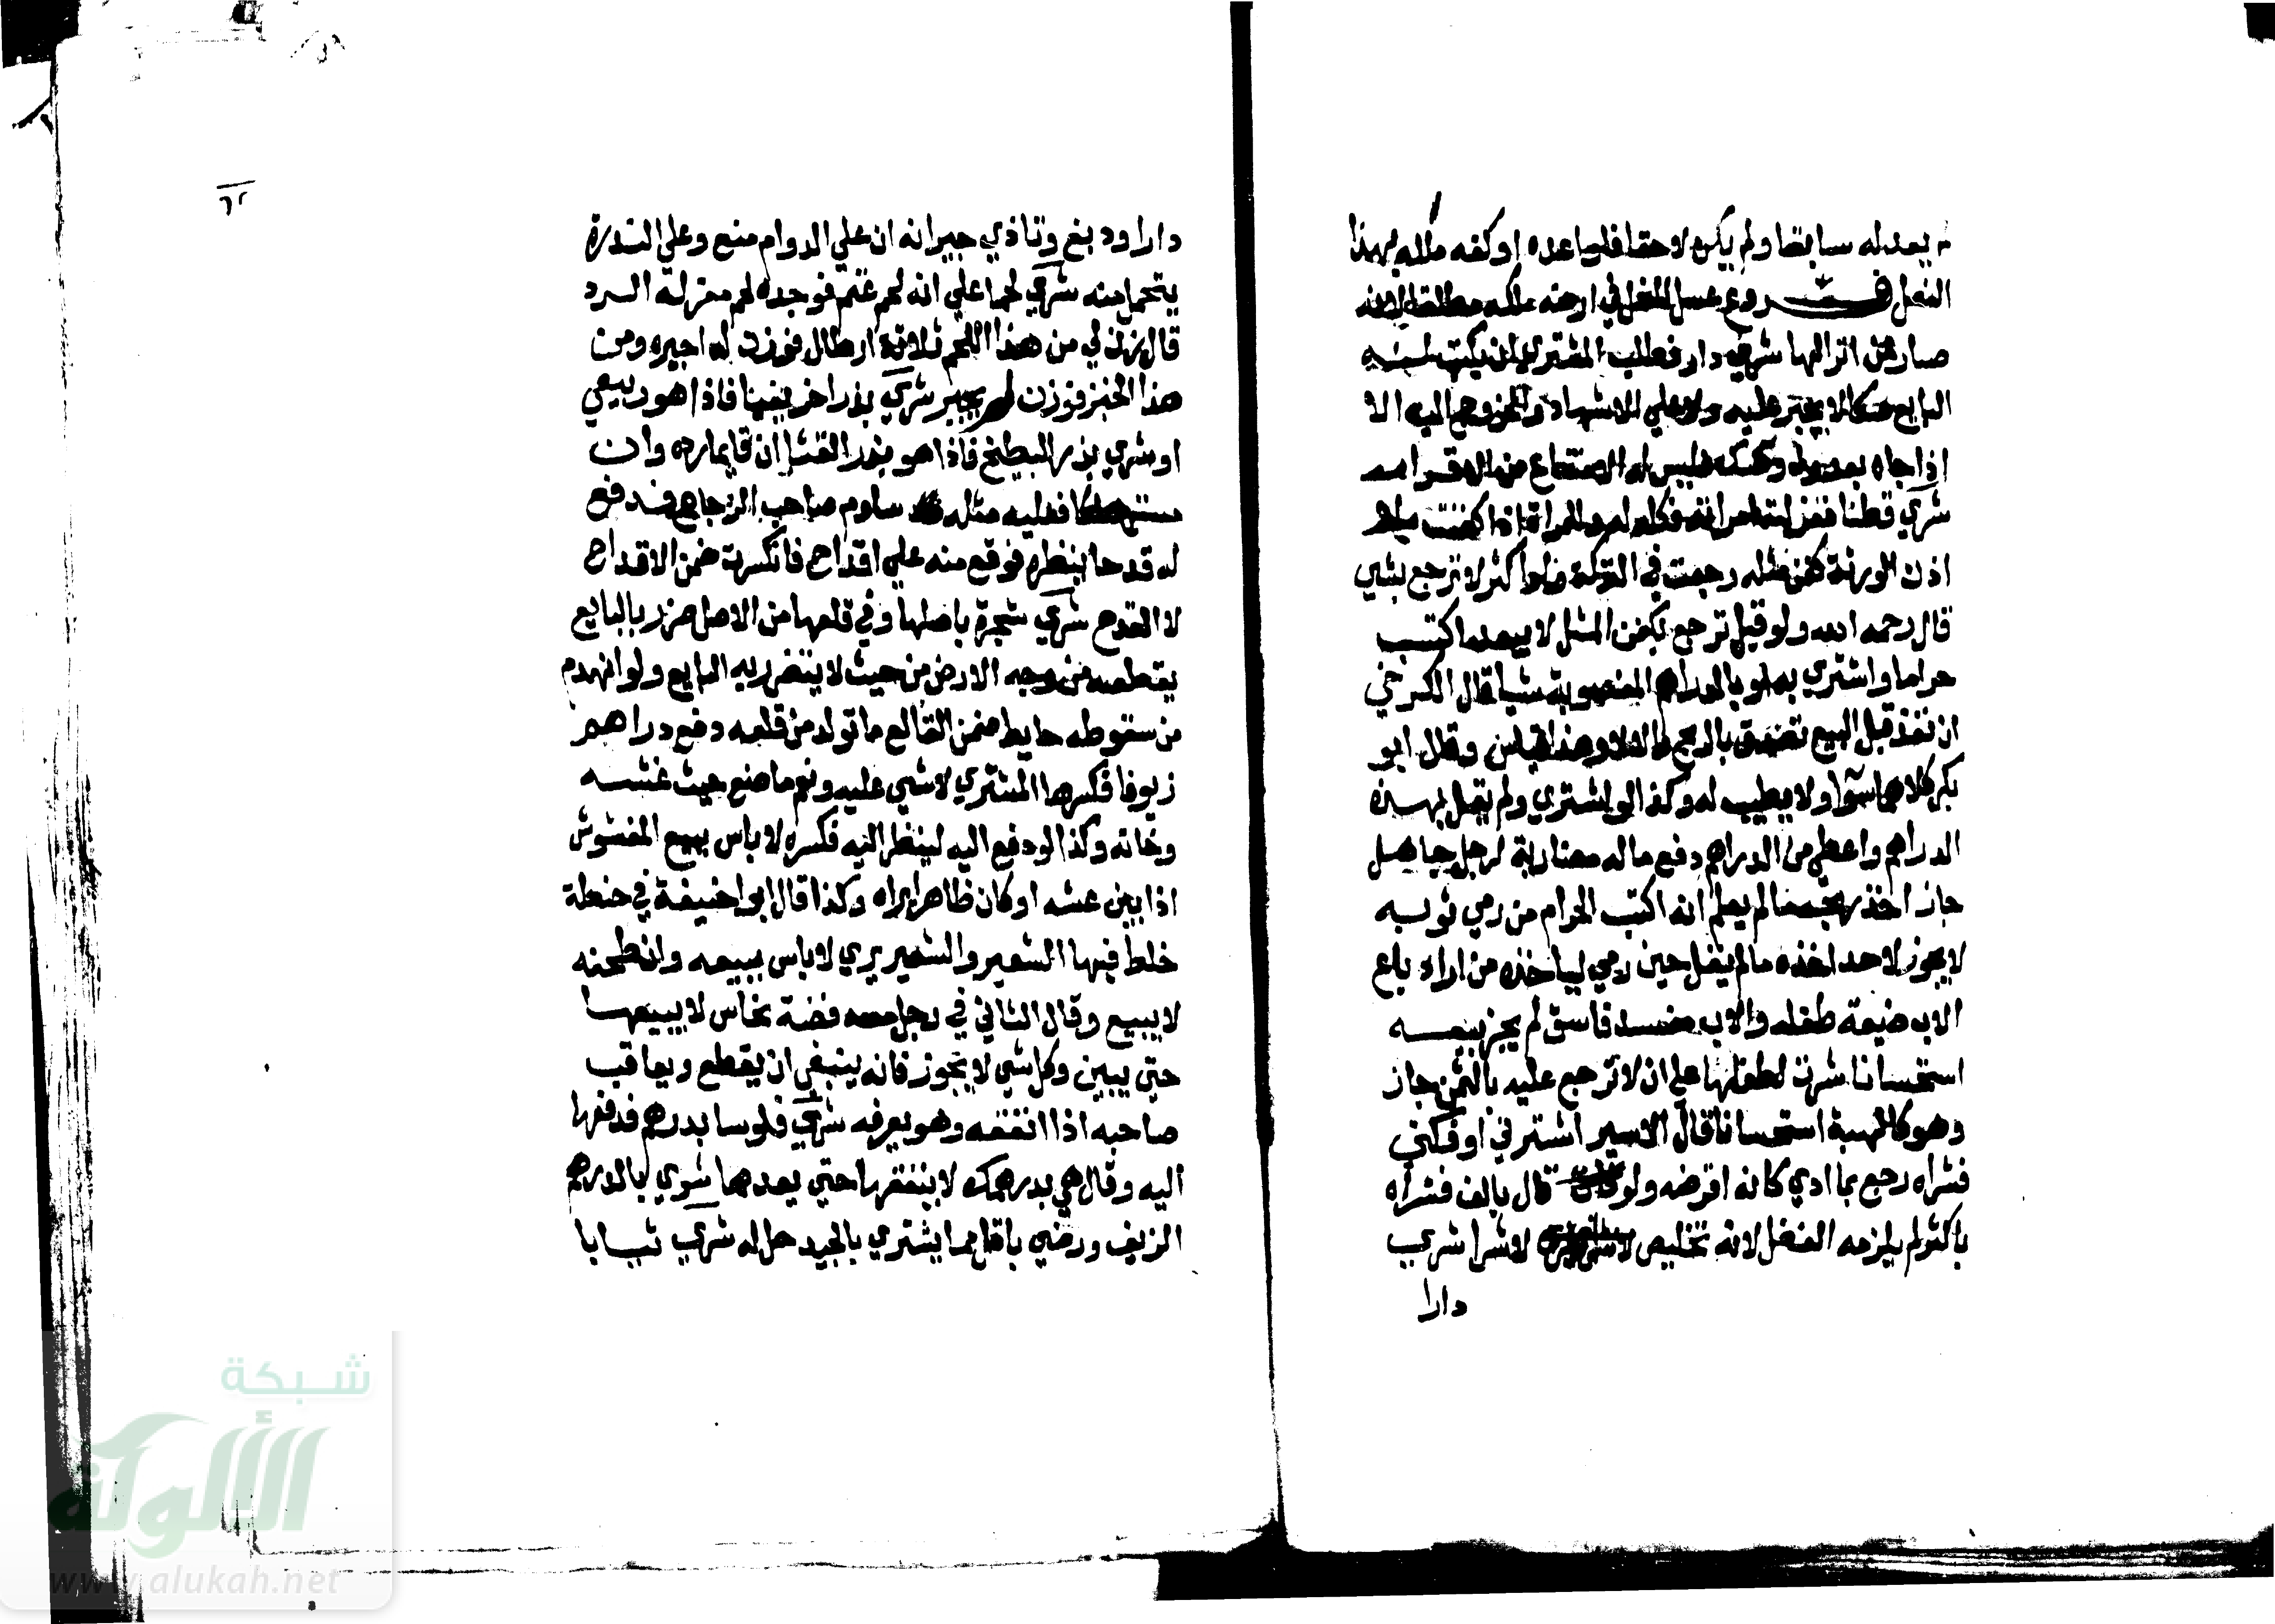 يعد له سابقا ولم يكن لاحقا فلو اعده او كفه ملكه بهذا
الفعل فروع عسل النحل في ارضه ملكه مطلقا لانه
صار من انزالها شري دار فطلب المشتري ان يكتب له
البايع صكا لا يجبر عليه ولا علي الاشهاد والخروج اليه الا
اذا جاه بعدول وصك فليس له الامتناع من الاقرار
شري قطنا فغزلته امراته فكله له المراة اذا كفنت بلا
اذن الورثة كفن مثله رجعت في التركة ولو اكثر لا ترجع بشي
قال رحمه الله ولو قيل ترجع بكفن المثل لا يبعد اكتسب
حراما واشتري به او بالدراهم المغصوبة شيا قال الكرخي
ان نقد قبل البيع تصدق بالربح والا لا وهذا قياس وقال ابو
بكر كلاهما سوآ ولا يطيب له وكذا لو اشتري ولم يقل بهذه
الدراهم واعطي من الدراهم دفع ماله مضاربة لرجل جاهل
جاز اخذ ربحه مالم يعلم انه اكتسب الحرام من رمي ثوبه
لا يجوز لاحد اخذه مالم يقل حين رمي لياخذه من اراد باع
الاب ضيعة طفله والاب مفسد فاسق لم يجز بيعه
استحسانا شرت لطفلها علي ان لا ترجع عليه بالثمن جاز
وهو كالهبة استحسانا قال الاسير اشترني او فكني
فشراه رجع بما ادي كانه اقرضه ولو قال بالف فشراه
باكثر لم يلزمه الفضل لانه تخليص لا شرا شري
دارا
٦٢
دارا ودبغ وتاذي جيرانه ان علي الدوام منع وعلي الندرة
يتحمل منه شري لحما علي انه لحم غنم فوجده لحم معز له الرد
قال زن لي من هذا اللحم ثلاثة ارطال فوزن له اخبره ومن
هذا الخبز فوزن لم يخبر شري بذرا خريفيا فاذا هو ربيعي
او شري بذر البطيخ فاذا هو بذر القثا ان قايما رده وان
مستهلكا فعليه مثله ساوم صاحب الزجاج فدفع
له قدحا ينظره فوقع منه علي اقداح فانكسرت ضمن الاقداح
لا القدح شري شجرة باصلها وفي قلعها من الاصل ضرر بالبايع
يقطعه من وجه الارض من حيث لا يتضرر به البايع ولو انهدم
من سقوطه حايط ضمن القالع ما تولد من قلعه دفع دراهم
زيوفا فكسرها المشتري لا شي عليه ونعم ما صنع حيث غشه
وخانه وكذا لو دفع اليه لينظر اليه فكسره لا باس ببيع المغشوش
اذا بين غشه او كان ظاهرا يراه وكذا قال ابو حنيفة في حنطة
خلط فيها الشعير والشعير يري لا باس ببيعه وان طحنه
لا يبيع وقال الثاني في رجل معه فضة نحاس لا يبيعها
حتي يبين وكل شي لا يجوز فانه ينبغي ان يقطع ويعاقب
صاحبه اذا انفقه وهو يعرفه شري فلوسا بدرهم فدفعها
اليه وقال هي بدرهمك لا ينفقها حتي يعدها شري بالدرهم
الزيف ورضي باقل مما يشتري بالجيد حل له شري ثيابا
شبكة
الألوكة
www.alukah.net